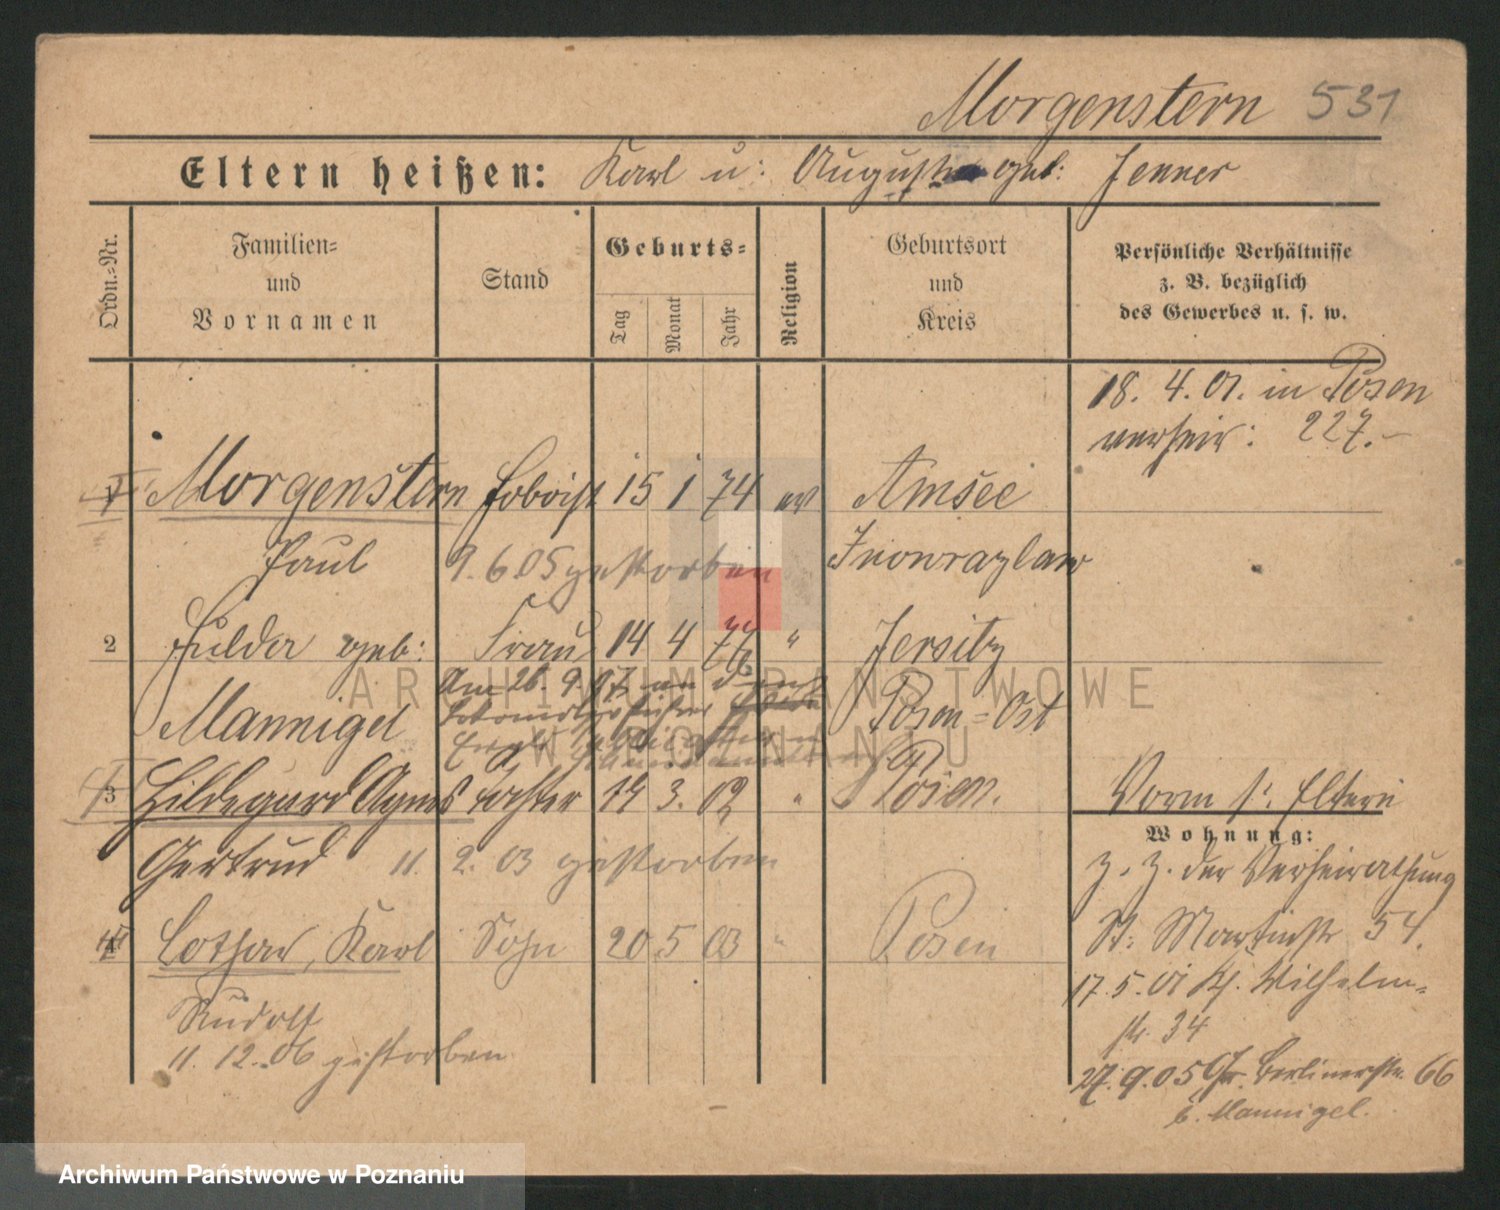 Morgenstern 531
Eltern heißen: Karl u: Auguste geb: Jenner
Ordn.=Nr.
Familien=
und
Vornamen
Stand
Geburts=
Tag
Monat
Jahr
Religion
Geburtsort
und
Kreis
Persönliche Verhältnisse
z. B. bezüglich
des Gewerbes u. s. w.
18. 4. 01. in Posen
verheir: 227.-
1 Morgenstern Hoboist 15 1 74 ev Amsee
Paul 9.6.05 gestorben Inowrazlaw
2 Hulda geb: Frau 14 4 76 " Jersitz
Am 26. 9. 07 an d
Mannigel Posen=Ost
3 Hildegard Agnes Tochter 14 3. 02 " Posen.
Gertrud 11. 2. 03 gestorben
4 Lothar, Karl Sohn 20 5 03 " Posen
Rudolf
11. 12. 06 gestorben
Vorm s. Eltern
Wohnung:
z. Z. der Verheirathung
St: Martinstr 54.
17. 5. 01 Kl. Wilhelm=
str. 34
27. 9. 05 Gr. Berlinerstr. 66
b. Mannigel.
ARCHIWUM PAŃSTWOWE
W POZNANIU
Archiwum Państwowe w Poznaniu